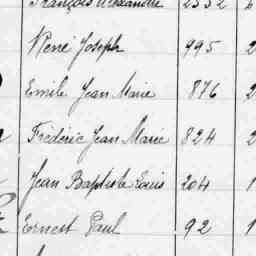 François Alexandre 2352
René Joseph 995 2
Emile Jean Marie 876 2
Frédéric Jean Marie 824 2
Jean Baptiste Louis 204 1
Ernest Paul 92 1